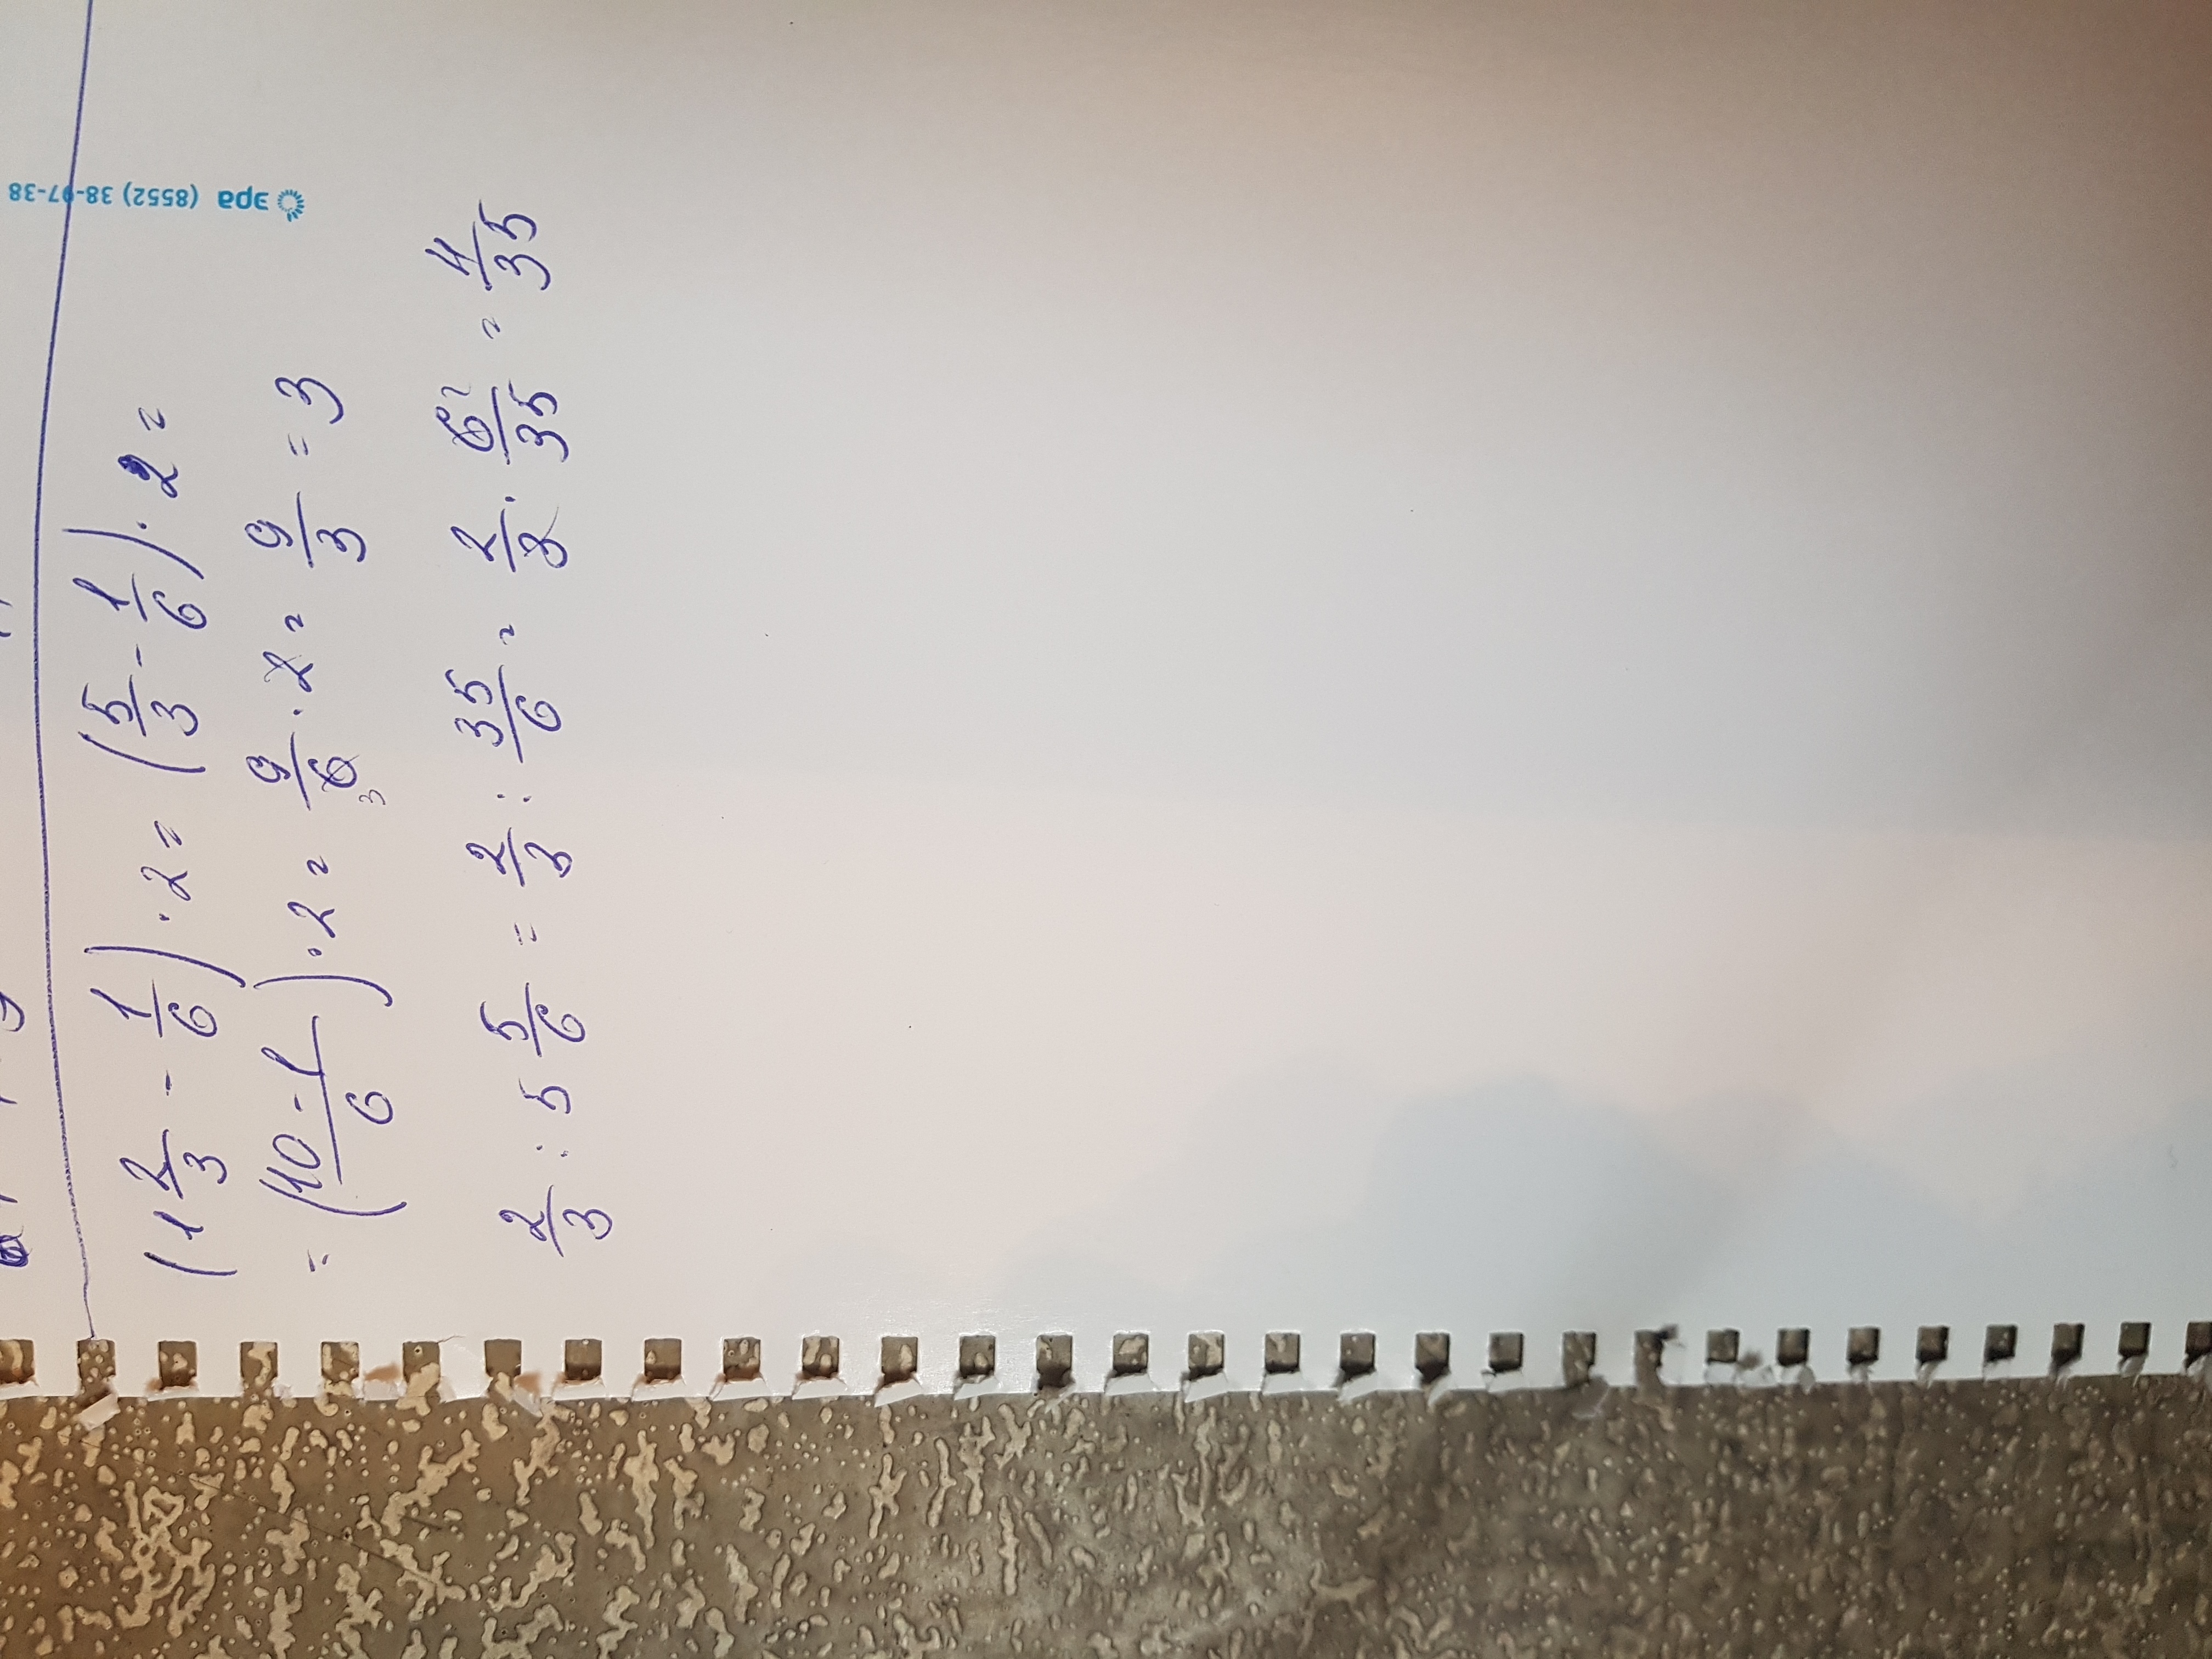 эра (8552) 38-97-38
(1 2/3 - 1/6) · 2 = (5/3 - 1/6) · 2 =
= (10 - 1/6) · 2 = 9/6 3 · 2 = 9/3 = 3
2/3 : 5 5/6 = 2/3 : 35/6 = 2/3 · 6 2/35 = 4/35